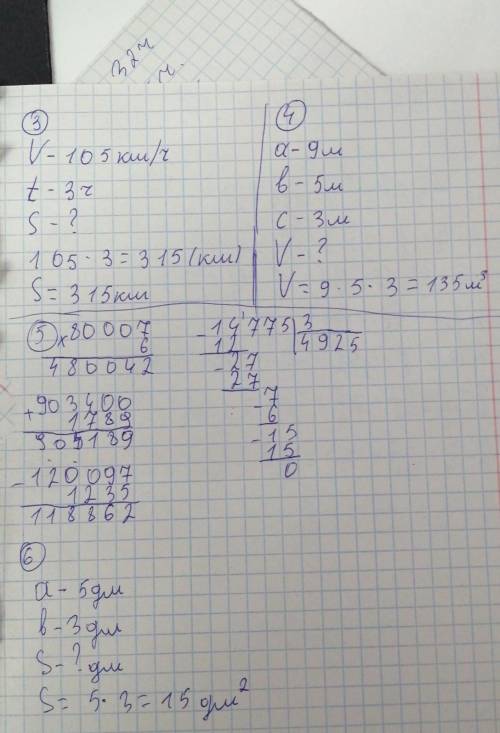 32ч
ч.
3
V - 105 км/ч
t - 3ч
S - ?
105 · 3 = 315 (км)
S = 315 км
4
a - 9м
b - 5м
c - 3м
V - ?
V = 9 · 5 · 3 = 135 м³
5
× 80007
6
480042
+ 903400
1789
905189
- 120097
1235
118862
- 14775 | 3
12 | 4925
- 27
27
- 7
6
- 15
15
0
6
a - 5 дм
b - 3 дм
S - ? дм
S = 5 · 3 = 15 дм²